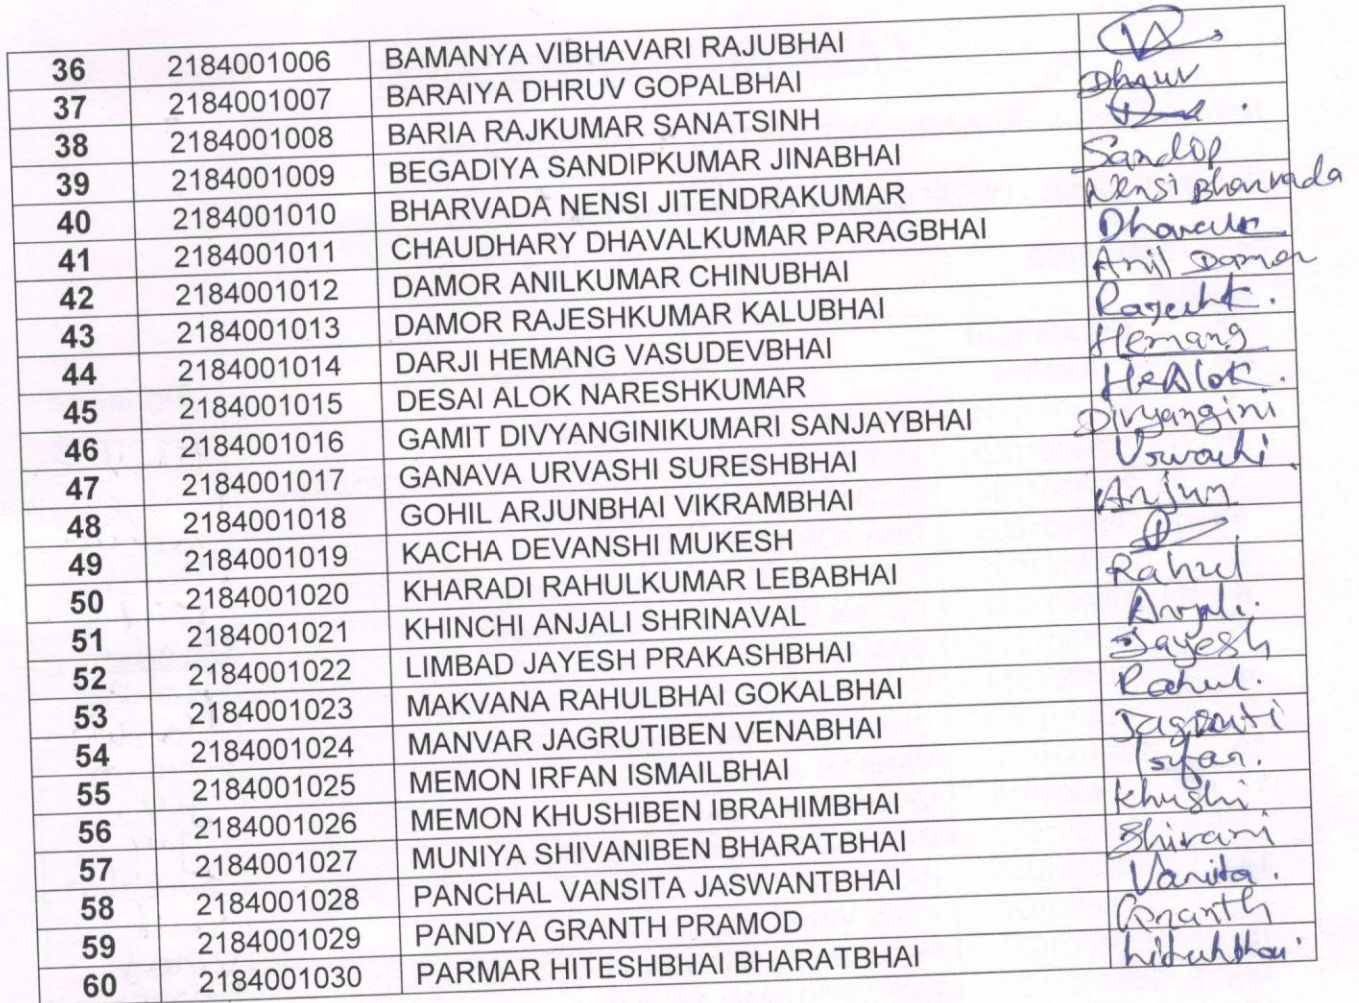 36 2184001006 BAMANYA VIBHAVARI RAJUBHAI
37 2184001007 BARAIYA DHRUV GOPALBHAI Dhruv
38 2184001008 BARIA RAJKUMAR SANATSINH
39 2184001009 BEGADIYA SANDIPKUMAR JINABHAI Sandip
40 2184001010 BHARVADA NENSI JITENDRAKUMAR Nensi Bharvada
41 2184001011 CHAUDHARY DHAVALKUMAR PARAGBHAI
42 2184001012 DAMOR ANILKUMAR CHINUBHAI Anil Damor
43 2184001013 DAMOR RAJESHKUMAR KALUBHAI
44 2184001014 DARJI HEMANG VASUDEVBHAI Hemang
45 2184001015 DESAI ALOK NARESHKUMAR Alok.
46 2184001016 GAMIT DIVYANGINIKUMARI SANJAYBHAI Divyangini
47 2184001017 GANAVA URVASHI SURESHBHAI Urvashi.
48 2184001018 GOHIL ARJUNBHAI VIKRAMBHAI Arjun
49 2184001019 KACHA DEVANSHI MUKESH
50 2184001020 KHARADI RAHULKUMAR LEBABHAI Rahul
51 2184001021 KHINCHI ANJALI SHRINAVAL Anjali.
52 2184001022 LIMBAD JAYESH PRAKASHBHAI Jayesh
53 2184001023 MAKVANA RAHULBHAI GOKALBHAI Rahul.
54 2184001024 MANVAR JAGRUTIBEN VENABHAI Jagruti
55 2184001025 MEMON IRFAN ISMAILBHAI Irfan.
56 2184001026 MEMON KHUSHIBEN IBRAHIMBHAI Khushi
57 2184001027 MUNIYA SHIVANIBEN BHARATBHAI Shivani
58 2184001028 PANCHAL VANSITA JASWANTBHAI Vansita.
59 2184001029 PANDYA GRANTH PRAMOD Granth
60 2184001030 PARMAR HITESHBHAI BHARATBHAI hiteshbhai